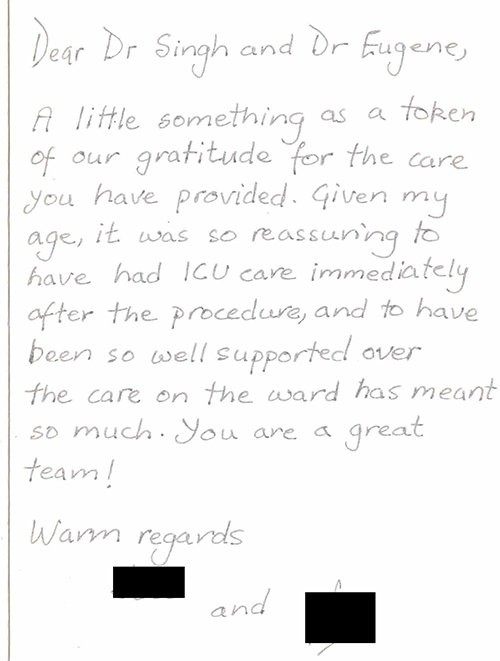 Dear Dr Singh and Dr Eugene,
A little something as a token
of our gratitude for the care
you have provided. Given my
age, it was so reassuring to
have had ICU care immediately
after the procedure, and to have
been so well supported over
the care on the ward has meant
so much. You are a great
team!
Warm regards
and